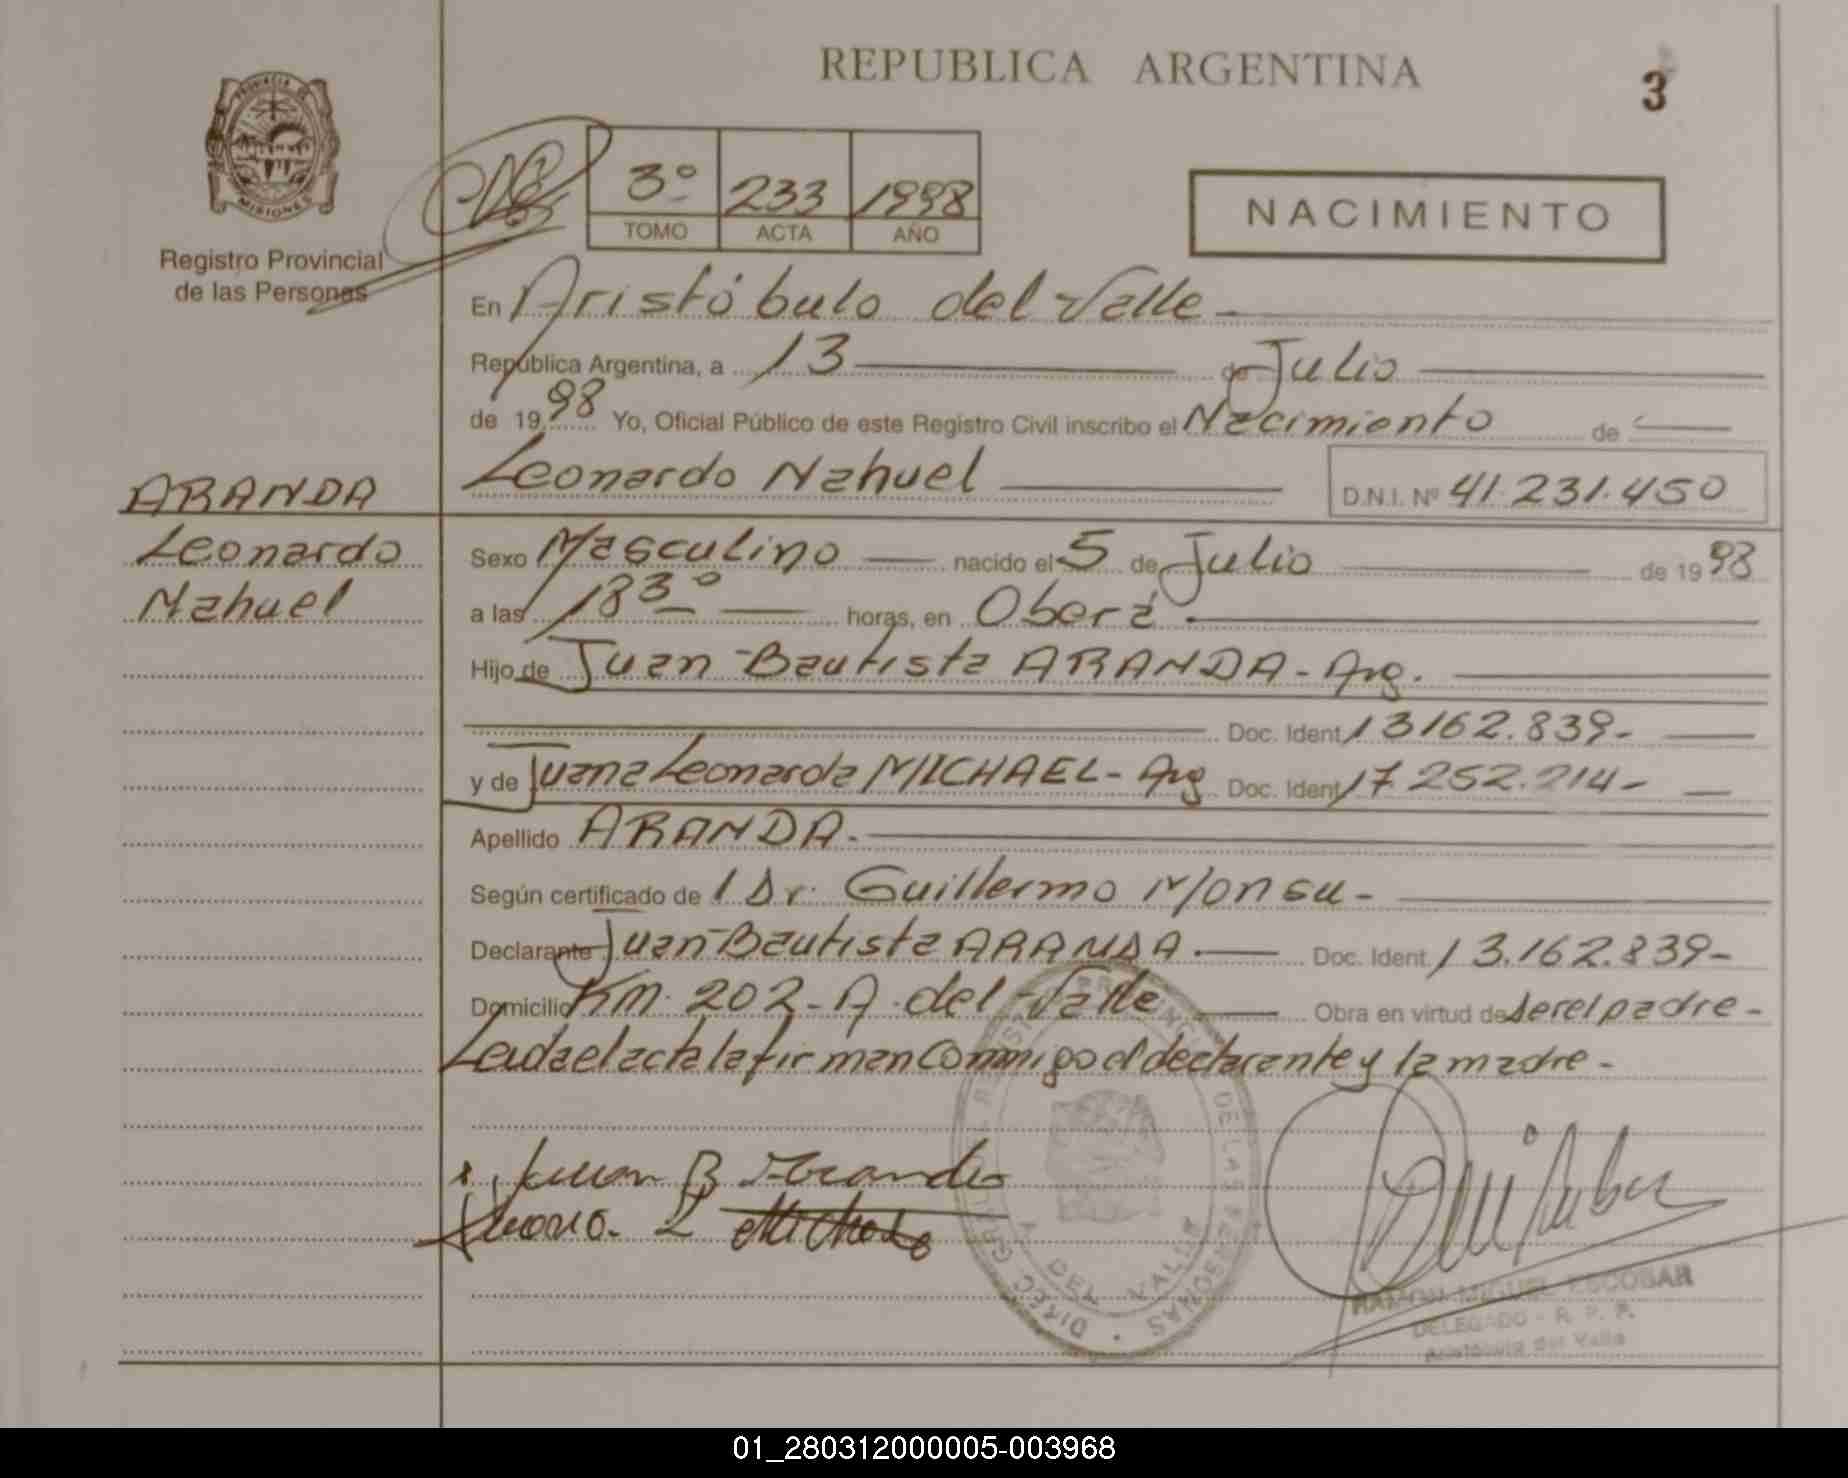 REPUBLICA ARGENTINA
3
PROVINCIA DE
MISIONES
Registro Provincial
de las Personas
3º 233 1998
TOMO ACTA AÑO
NACIMIENTO
En Aristóbulo del Valle
República Argentina, a 13 de Julio
de 1998 Yo, Oficial Público de este Registro Civil inscribo el Nacimiento de
Leonardo Nahuel D.N.I. Nº 41.231.450
ARANDA
Leonardo
Nahuel
Sexo Masculino nacido el 5 de Julio de 1998
a las 18 30 horas, en Oberá
Hijo de Juan Bautista ARANDA - Arg.
Doc. Ident 13162.839-
y de Juana Leonarda MICHAEL - Arg Doc. Ident 17.252.214-
Apellido ARANDA.
Según certificado de 1 Dr. Guillermo Monsu -
Declarante Juan Bautista ARANDA. Doc. Ident. 13.162.839-
Domicilio KM. 202 - A. del Valle Obra en virtud de ser el padre -
Leida el acta la firman conmigo el declarante y la madre -
Juan B Aranda
Juana L
DIREC GRAL REGISTRO PROVINCIAL DE LAS PERSONAS
A DEL VALLE
RAMON MIGUEL ESCOBAR
DELEGADO - R. P. P.
Aristobulo del Valle
01_280312000005-003968